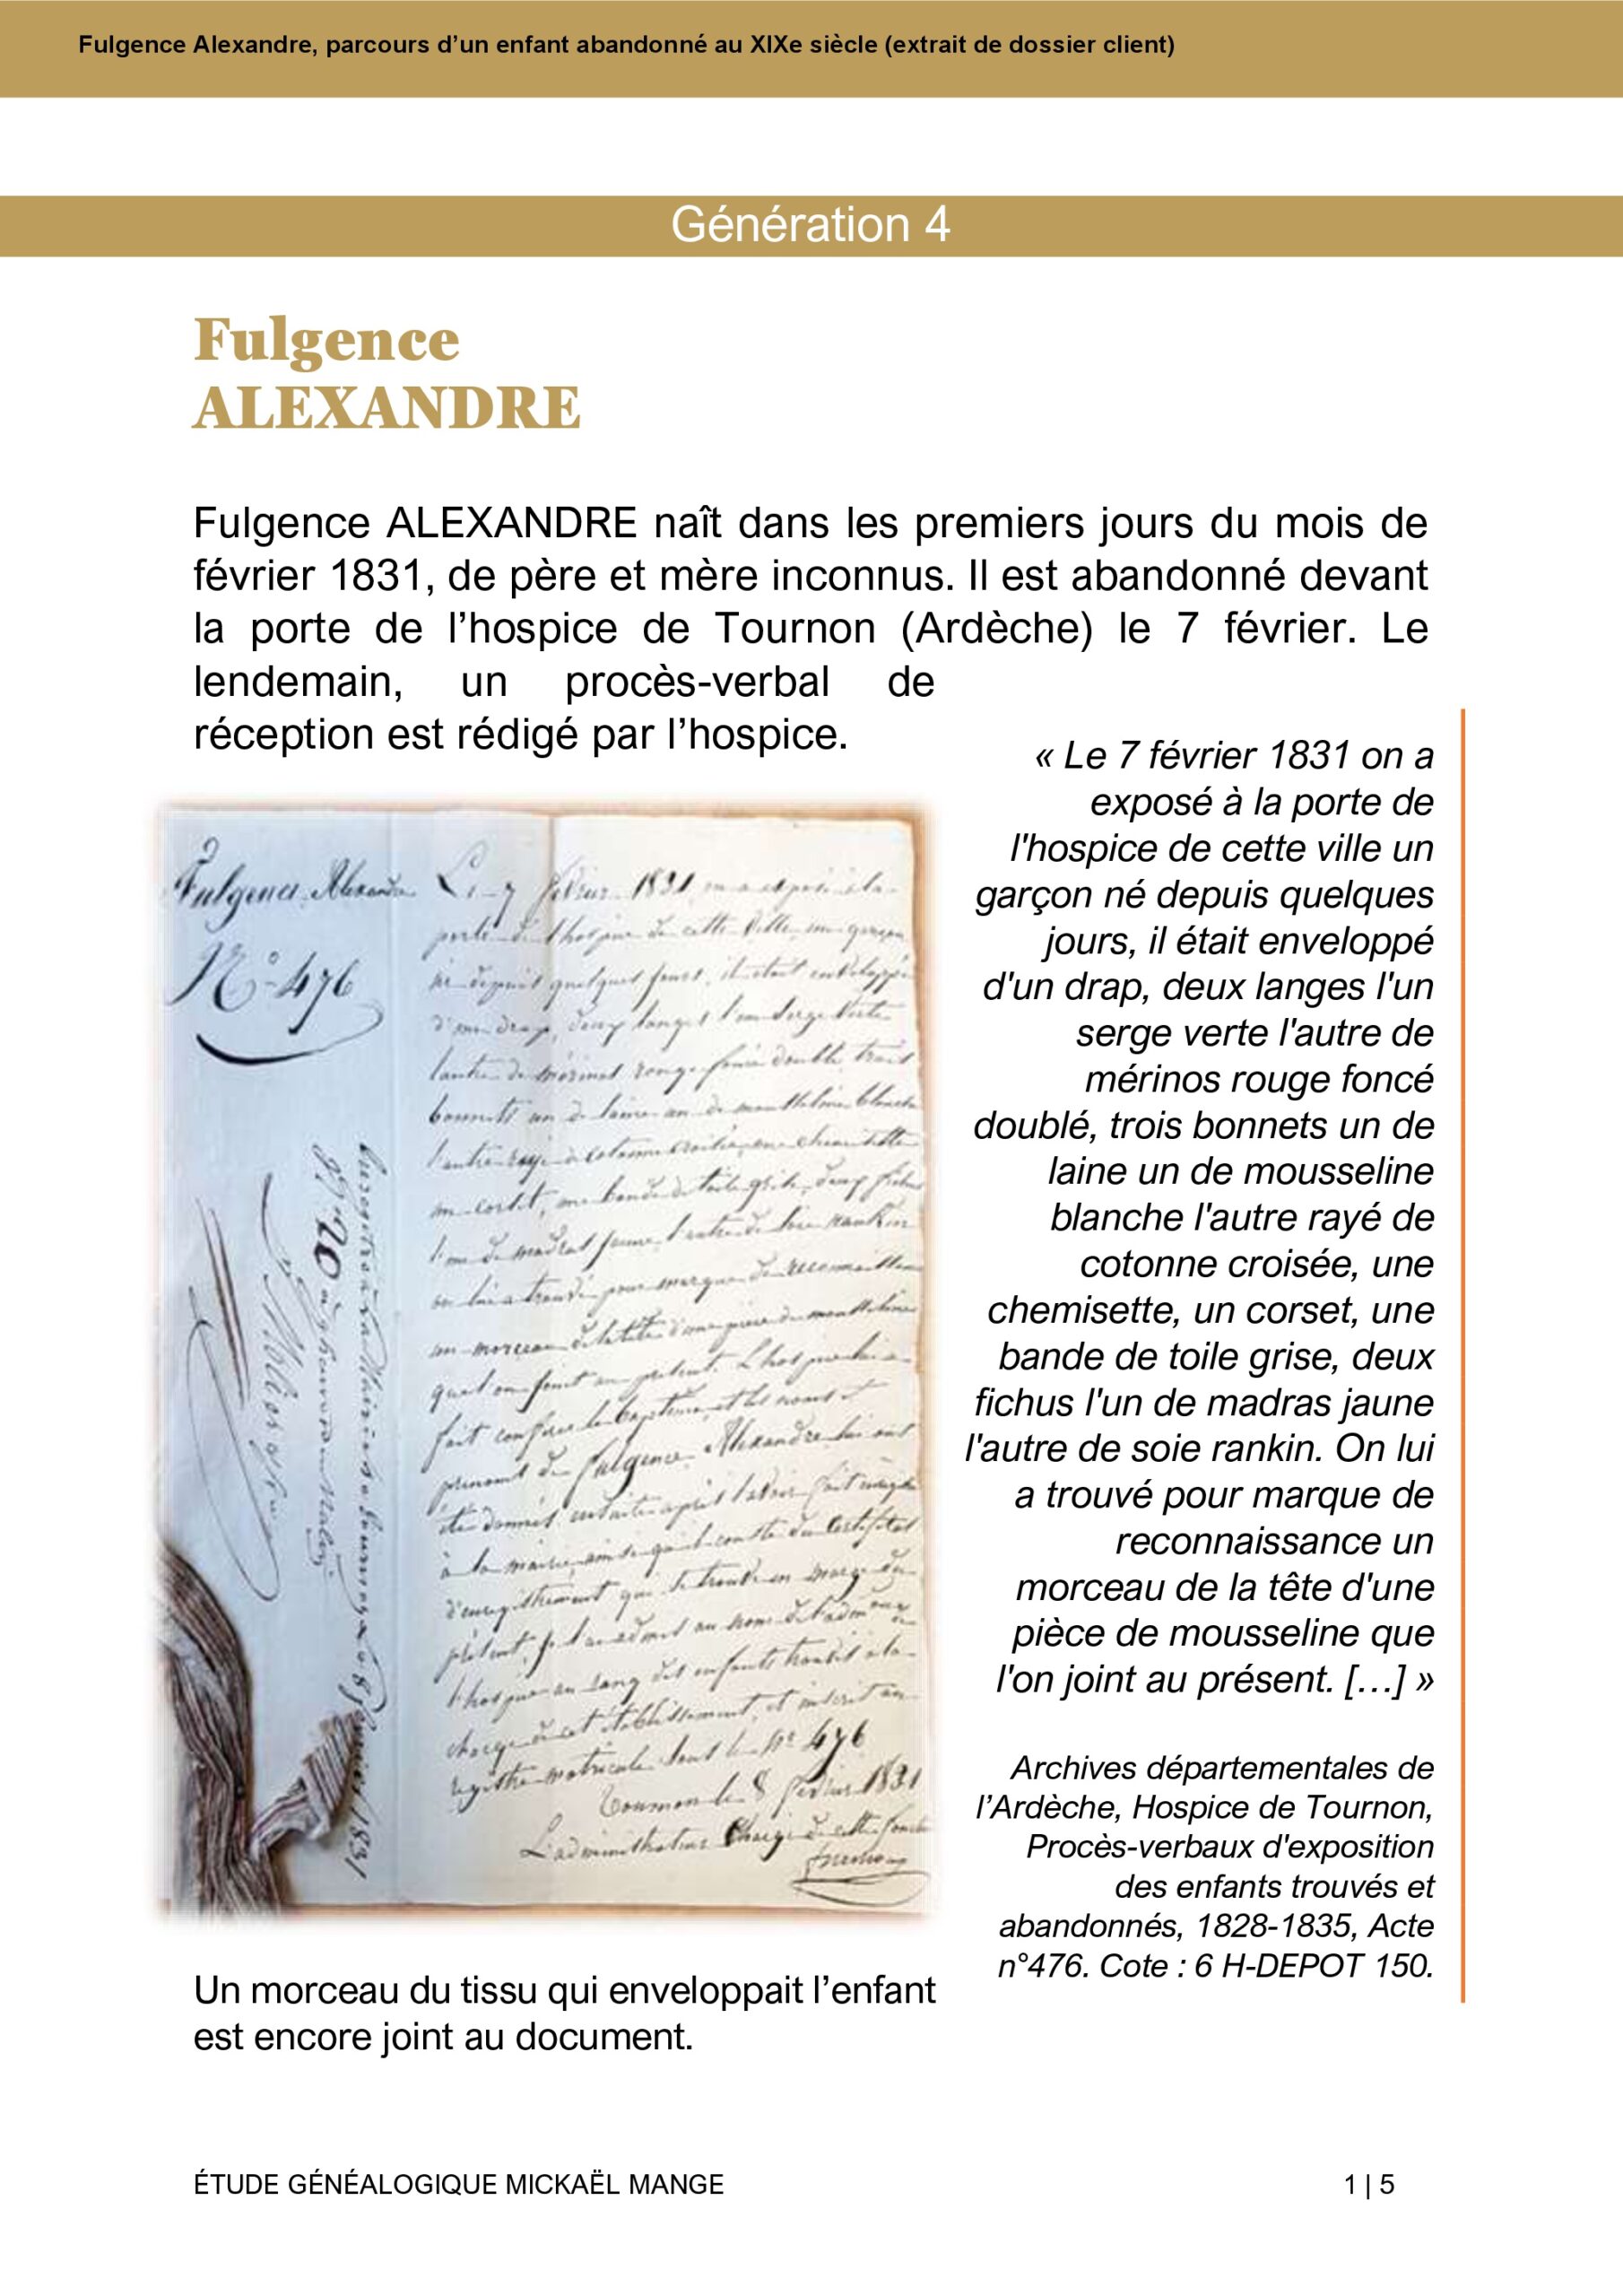 Fulgence Alexandre, parcours d’un enfant abandonné au XIXe siècle (extrait de dossier client)
Génération 4
Fulgence
ALEXANDRE
Fulgence ALEXANDRE naît dans les premiers jours du mois de
février 1831, de père et mère inconnus. Il est abandonné devant
la porte de l’hospice de Tournon (Ardèche) le 7 février. Le
lendemain, un procès-verbal de
réception est rédigé par l’hospice.
Fulgence Alexandre
N° 476
Le 7 février 1831 on a exposé à la
porte de l'hospice de cette ville un garçon
né depuis quelques jours, il était enveloppé
d'un drap, deux langes l'un serge verte
l'autre de mérinos rouge foncé doublé, trois
bonnets un de laine un de mousseline blanche
l'autre rayé de cotonne croisée, une chemisette
un corset, une bande de toile grise, deux fichus
l'un de madras jaune l'autre de soie nankin
on lui a trouvé pour marque de reconnaissance
un morceau de la tête d'une pièce de mousseline
que l'on joint au présent. L'hospice lui a
fait conférer le baptême, et les noms et
prénoms de Fulgence Alexandre lui ont
été donnés ensuite après l'avoir fait
à la mairie ainsi qu'il conste du certificat
d'enregistrement qui se trouve en marge du
présent, je l'ai admis au nom de
l'hospice au rang des enfants trouvés à la
charge de cet établissement, et inscrit au
registre matricule sous le N° 476
Tournon le 8 février 1831
L'administrateur Chargé de cette
« Le 7 février 1831 on a
exposé à la porte de
l'hospice de cette ville un
garçon né depuis quelques
jours, il était enveloppé
d'un drap, deux langes l'un
serge verte l'autre de
mérinos rouge foncé
doublé, trois bonnets un de
laine un de mousseline
blanche l'autre rayé de
cotonne croisée, une
chemisette, un corset, une
bande de toile grise, deux
fichus l'un de madras jaune
l'autre de soie rankin. On lui
a trouvé pour marque de
reconnaissance un
morceau de la tête d'une
pièce de mousseline que
l'on joint au présent. […] »
Archives départementales de
l’Ardèche, Hospice de Tournon,
Procès-verbaux d'exposition
des enfants trouvés et
abandonnés, 1828-1835, Acte
n°476. Cote : 6 H-DEPOT 150.
Un morceau du tissu qui enveloppait l’enfant
est encore joint au document.
ÉTUDE GÉNÉALOGIQUE MICKAËL MANGE
1 | 5